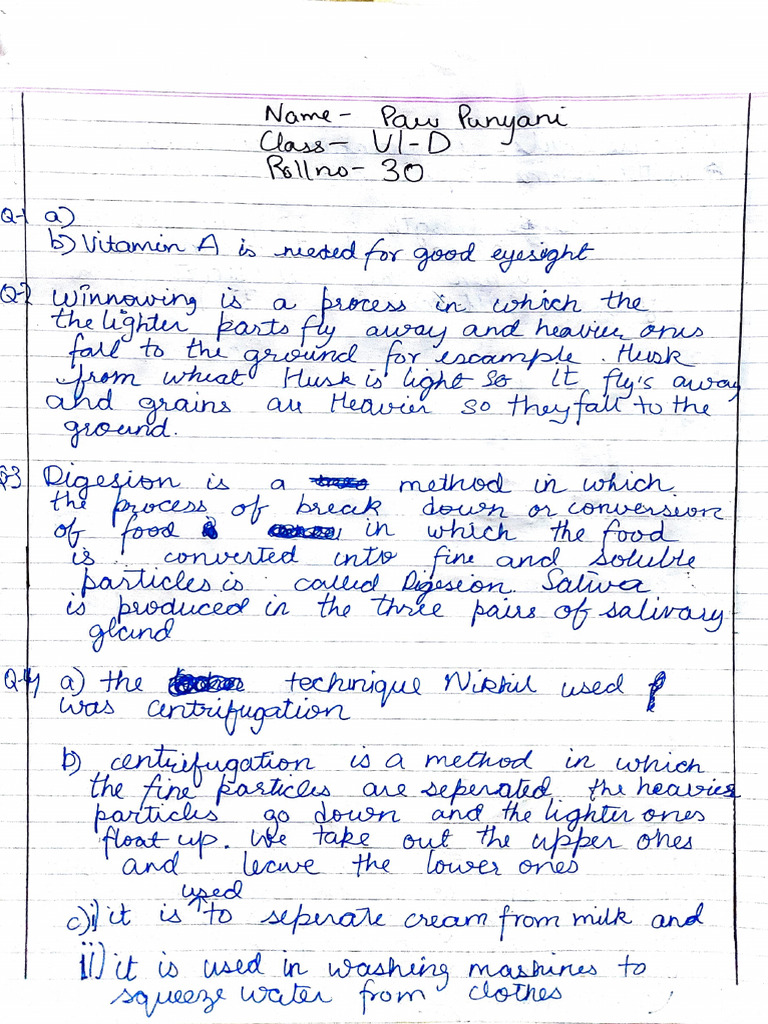 Name - Paw Punyani
Class - VI-D
Roll no - 30
Q-1 a)
b) Vitamin A is needed for good eyesight
Q-2 Winnowing is a process in which the
the lighter parts fly away and heavier ones
fall to the ground for escample. Husk
from wheat Husk is light so It fly's away
and grains are Heavier so they fall to the
ground.
Q-3 Digesion is a method in which
the process of break down or conversion
of food in which the food
is converted into fine and soluble
particles is called Digesion. Saliva
is produced in the three pairs of salivary
gland
Q-4 a) the technique Nikhil used
was centrifugation
b) centrifugation is a method in which
the fine particles are seperated the heavier
particles go down and the lighter ones
float up. We take out the upper ones
and leave the lower ones
c) i) it is used to seperate cream from milk and
ii) it is used in washing mashines to
squeeze water from clothes